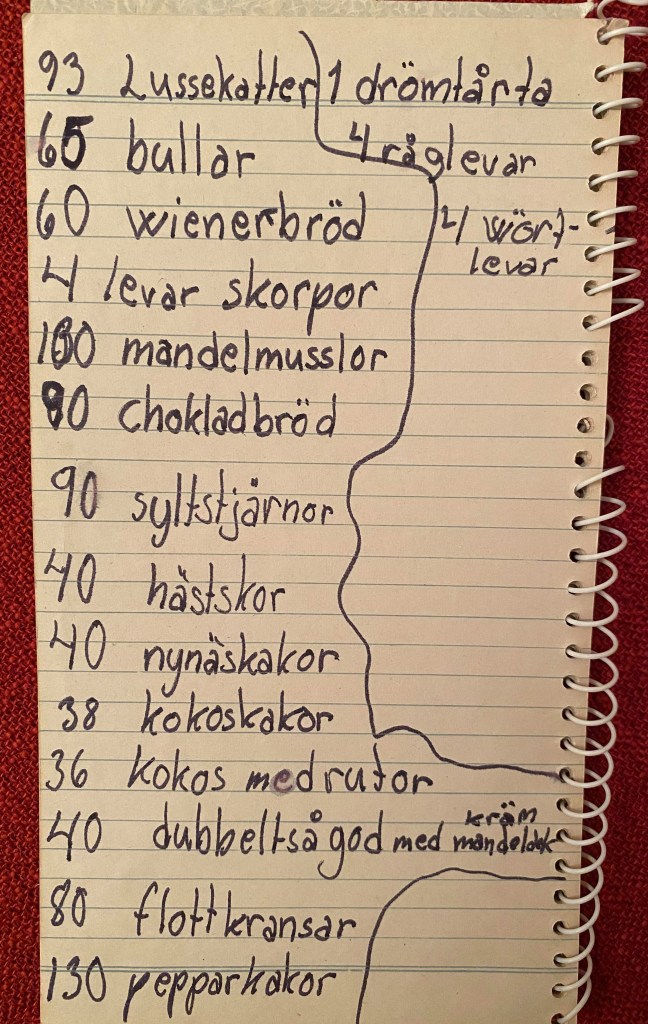 93 Lussekatter
65 bullar
60 wienerbröd
4 levar skorpor
100 mandelmusslor
80 chokladbröd
90 syltstjärnor
40 hästskor
40 nynäskakor
38 kokoskakor
36 kokos med rutor
40 dubbeltså god med kräm
mandeldek
80 flottkransar
130 pepparkakor
1 drömtårta
4 råglevar
4 wört-
levar